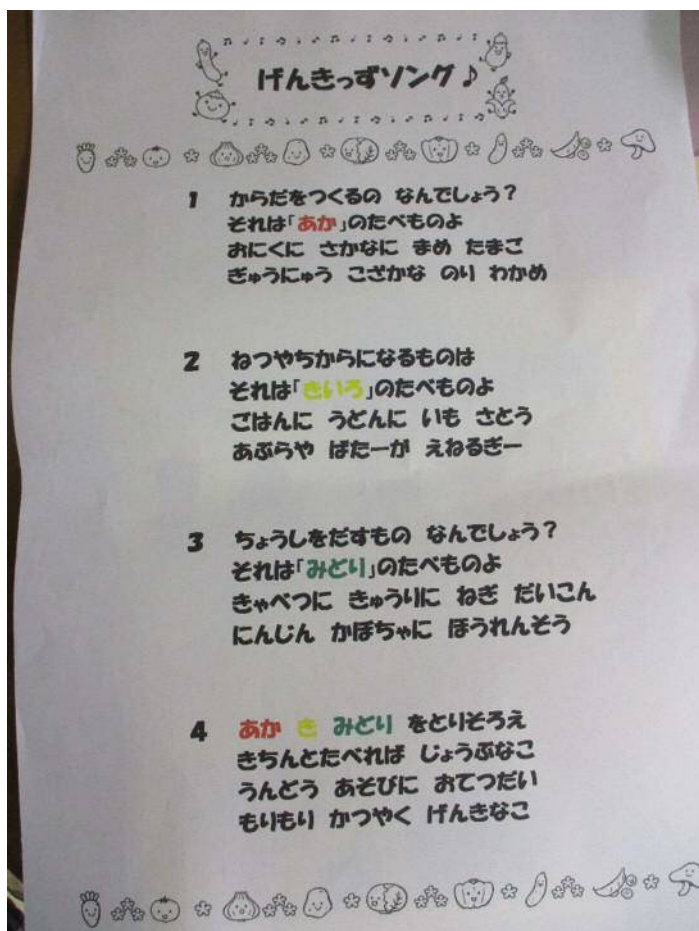 げんきっずソング♪
1 からだをつくるの なんでしょう?
それは「あか」のたべものよ
おにくに さかなに まめ たまご
ぎゅうにゅう こざかな のり わかめ
2 ねつやちからになるものは
それは「きいろ」のたべものよ
ごはんに うどんに いも さとう
あぶらや ばたーが えねるぎー
3 ちょうしをだすもの なんでしょう?
それは「みどり」のたべものよ
きゃべつに きゅうりに ねぎ だいこん
にんじん かぼちゃに ほうれんそう
4 あか き みどり をとりそろえ
きちんとたべれば じょうぶなこ
うんどう あそびに おてつだい
もりもり かつやく げんきなこ